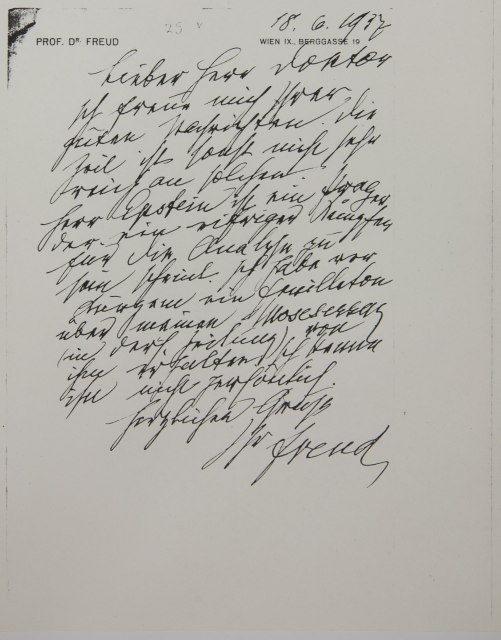 25 v
18. 6. 1937
PROF. DR. FREUD
WIEN IX., BERGGASSE 19
Lieber Herr Doktor
Ich freue mich Ihrer
guten Nachrichten. Die
Zeit ist sonst nicht sehr
reich an solchen!
Herr Epstein ist ein
der ein eifriger Kämpfer
für die Analyse zu
sein scheint. Ich habe vor
kurzem ein Feuilleton
über meinen
(in der Zeitung) von
ihm erhalten. Ich kenne
ihn nicht persönlich.
Herzlichen Gruß
Ihr Freud